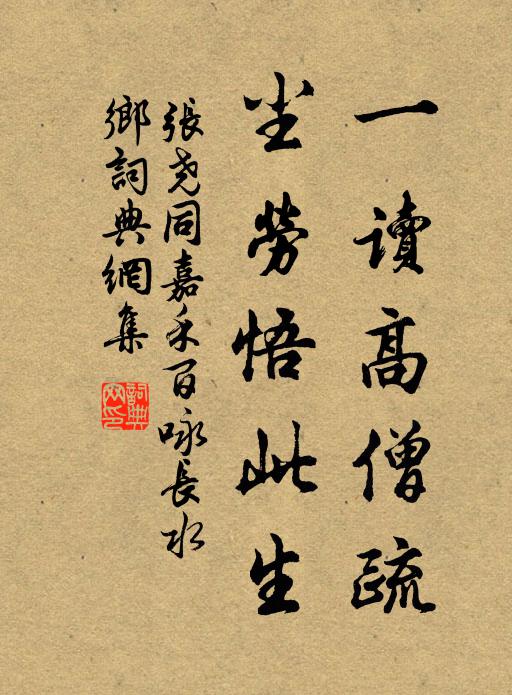 一讀高僧疏
尘勞悟此生
張尧同嘉禾百咏長水
鄉詞典網集
詞典
网印